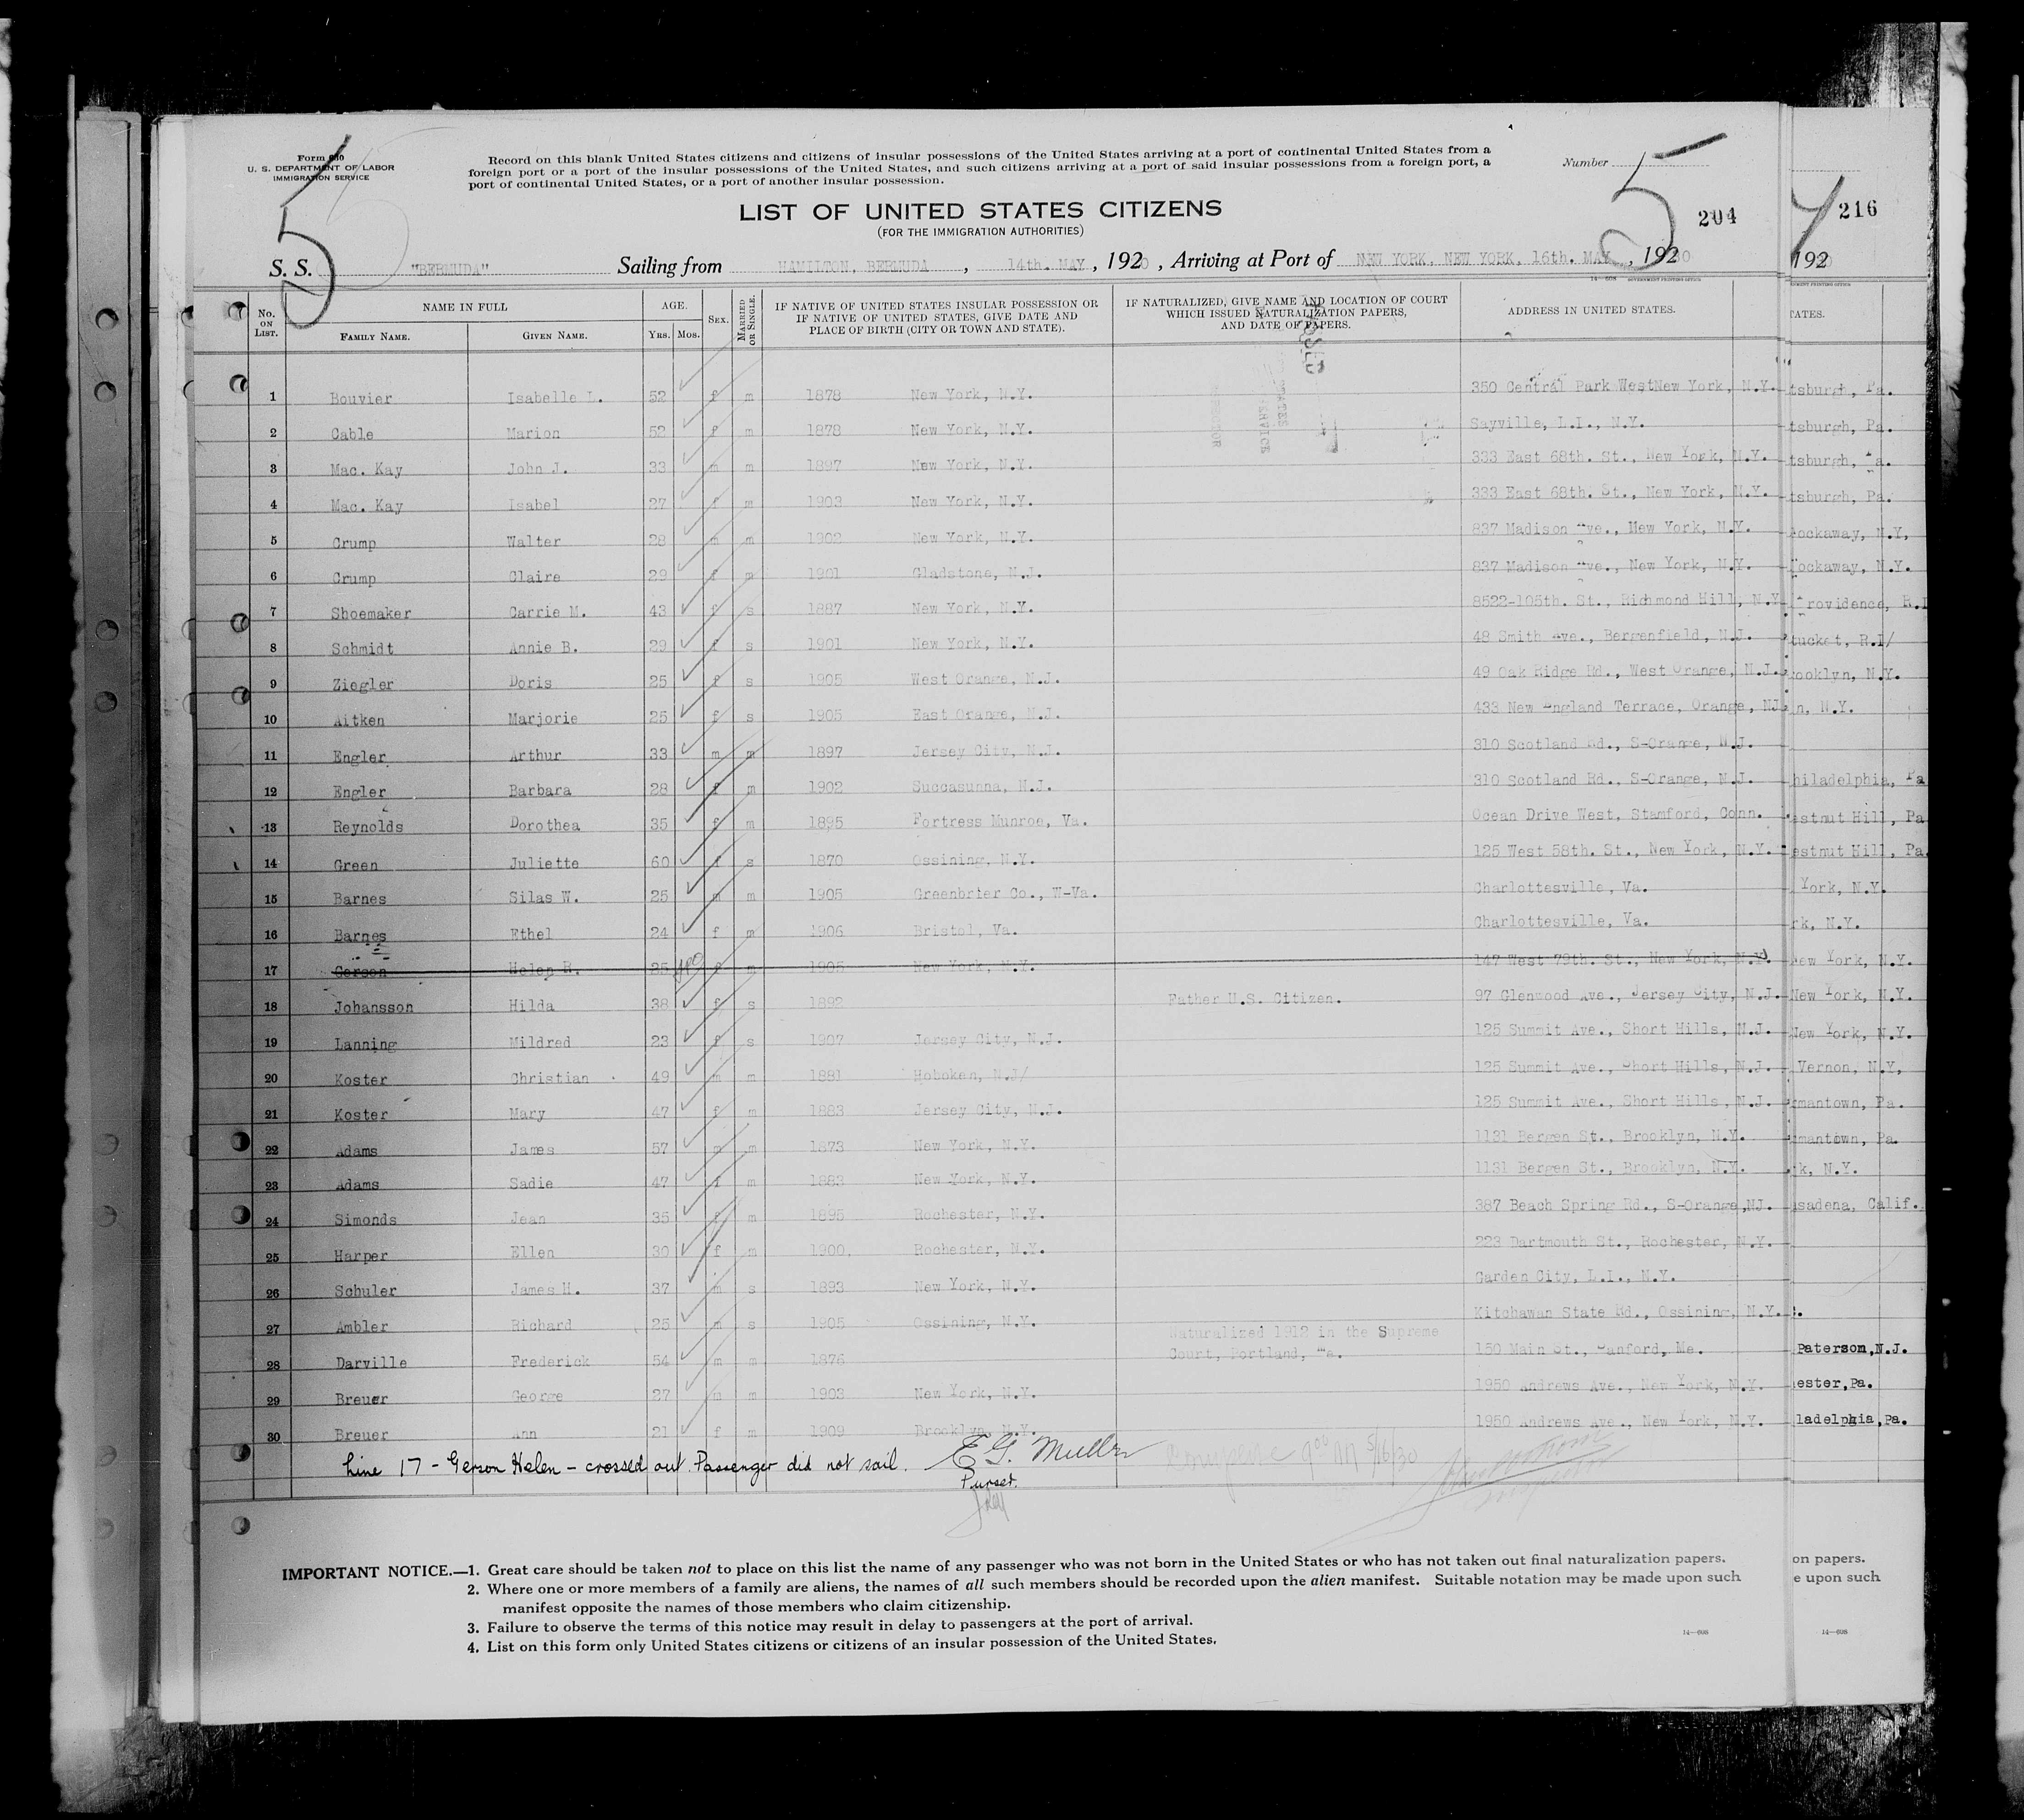 Form 630
U. S. DEPARTMENT OF LABOR
IMMIGRATION SERVICE
Record on this blank United States citizens and citizens of insular possessions of the United States arriving at a port of continental United States from a
foreign port or a port of the insular possessions of the United States, and such citizens arriving at a port of said insular possessions from a foreign port, a
port of continental United States, or a port of another insular possession.
Number 5
5
204
LIST OF UNITED STATES CITIZENS
(FOR THE IMMIGRATION AUTHORITIES)
S. S. "BERMUDA" Sailing from HAMILTON, BERMUDA, 14th. MAY, 1920, Arriving at Port of NEW YORK, NEW YORK, 16th. MAY, 1920
14—608 GOVERNMENT PRINTING OFFICE
No. ON LIST. NAME IN FULL FAMILY NAME. GIVEN NAME. AGE. YRS. MOS. SEX. MARRIED OR SINGLE. IF NATIVE OF UNITED STATES INSULAR POSSESSION OR IF NATIVE OF UNITED STATES, GIVE DATE AND PLACE OF BIRTH (CITY OR TOWN AND STATE). IF NATURALIZED, GIVE NAME AND LOCATION OF COURT WHICH ISSUED NATURALIZATION PAPERS, AND DATE OF PAPERS. ADDRESS IN UNITED STATES.
1 Bouvier Isabelle L. 52 f m 1878 New York, N.Y. 350 Central Park West New York, N.Y.
2 Cable Marion 52 f m 1878 New York, N.Y. Sayville, L.I., N.Y.
3 Mac. Kay John J. 33 m m 1897 New York, N.Y. 333 East 68th. St., New York, N.Y.
4 Mac. Kay Isabel 27 f m 1903 New York, N.Y. 333 East 68th. St., New York, N.Y.
5 Crump Walter 28 m m 1902 New York, N.Y. 837 Madison Ave., New York, N.Y.
6 Crump Claire 29 f m 1901 Gladstone, N.J. 837 Madison Ave., New York, N.Y.
7 Shoemaker Carrie M. 43 f s 1887 New York, N.Y. 8522-105th. St., Richmond Hill, N.Y.
8 Schmidt Annie B. 29 f s 1901 New York, N.Y. 48 Smith Ave., Bergenfield, N.J.
9 Ziegler Doris 25 f s 1905 West Orange, N.J. 49 Oak Ridge Rd., West Orange, N.J.
10 Aitken Marjorie 25 f s 1905 East Orange, N.J. 433 New England Terrace, Orange, NJ
11 Engler Arthur 33 m m 1897 Jersey City, N.J. 310 Scotland Rd., S-Orange, N.J.
12 Engler Barbara 28 f m 1902 Succasunna, N.J. 310 Scotland Rd., S-Orange, N.J.
13 Reynolds Dorothea 35 f m 1895 Fortress Munroe, Va. Ocean Drive West, Stamford, Conn.
14 Green Juliette 60 f s 1870 Ossining, N.Y. 125 West 58th. St., New York, N.Y.
15 Barnes Silas W. 25 m m 1905 Greenbrier Co., W-Va. Charlottesville, Va.
16 Barnes Ethel 24 f m 1906 Bristol, Va. Charlottesville, Va.
17 Gerson Helen R. 25 f m 1905 New York, N.Y. 147 West 79th. St., New York, N.Y.
18 Johansson Hilda 38 f s 1892 Father U.S. Citizen. 97 Glenwood Ave., Jersey City, N.J.
19 Lanning Mildred 23 f s 1907 Jersey City, N.J. 125 Summit Ave., Short Hills, N.J.
20 Koster Christian 49 m m 1881 Hoboken, N.J/ 125 Summit Ave., Short Hills, N.J.
21 Koster Mary 47 f m 1883 Jersey City, N.J. 125 Summit Ave., Short Hills, N.J.
22 Adams James 57 m m 1873 New York, N.Y. 1131 Bergen St., Brooklyn, N.Y.
23 Adams Sadie 47 f m 1883 New York, N.Y. 1131 Bergen St., Brooklyn, N.Y.
24 Simonds Jean 35 f m 1895 Rochester, N.Y. 387 Beach Spring Rd., S-Orange, NJ.
25 Harper Ellen 30 f m 1900. Rochester, N.Y. 223 Dartmouth St., Rochester, N.Y.
26 Schuler James H. 37 m s 1893 New York, N.Y. Garden City, L.I., N.Y.
27 Ambler Richard 25 m s 1905 Ossining, N.Y. Kitchawan State Rd., Ossining, N.Y.
Naturalized 1912 in the Supreme
28 Darville Frederick 54 m m 1876 Court, Portland, Ma. 150 Main St., Sanford, Me.
29 Breuer George 27 m m 1903 New York, N.Y. 1950 Andrews Ave., New York, N.Y.
30 Breuer Ann 21 f m 1909 Brooklyn, N.Y. 1950 Andrews Ave., New York, N.Y.
Line 17 - Gerson Helen - crossed out. Passenger did not sail. E G. Muller
Purser.
9 00 AM 5/16/30
IMPORTANT NOTICE.—1. Great care should be taken not to place on this list the name of any passenger who was not born in the United States or who has not taken out final naturalization papers.
2. Where one or more members of a family are aliens, the names of all such members should be recorded upon the alien manifest. Suitable notation may be made upon such
manifest opposite the names of those members who claim citizenship.
3. Failure to observe the terms of this notice may result in delay to passengers at the port of arrival.
4. List on this form only United States citizens or citizens of an insular possession of the United States.
14—608
4 216
192
TATES.
tsburgh, Pa.
tsburgh, Pa.
tsburgh, Pa.
tsburgh, Pa.
ockaway, N.Y,
ockaway, N.Y.
Providence, R.I
tucket, R.I/
ooklyn, N.Y.
n, N.Y.
hiladelphia, Pa
estnut Hill, Pa
estnut Hill, Pa
York, N.Y.
rk, N.Y.
New York, N.Y.
New York, N.Y.
New York, N.Y.
Vernon, N.Y,
rmantown, Pa.
rmantown, Pa.
k, N.Y.
asadena, Calif.
Paterson,N.J.
ester,Pa.
ladelphia,Pa.
on papers.
e upon such
14—608